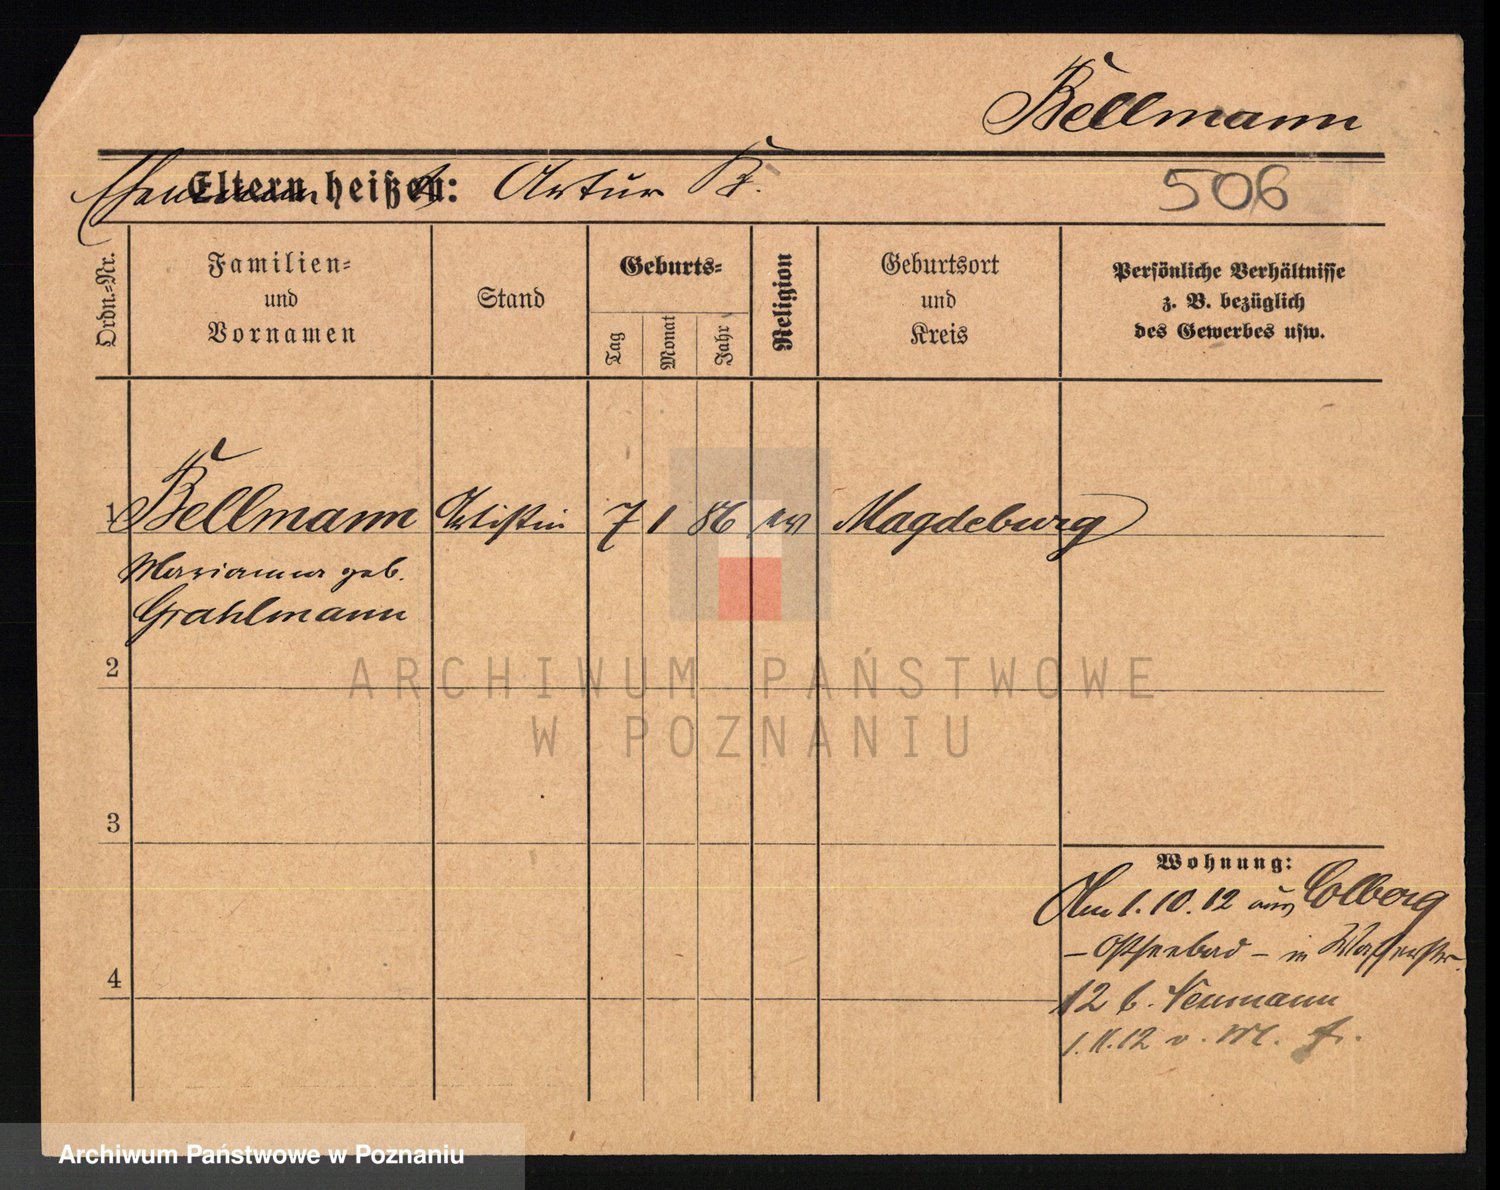 Bellmann
Eltern heißen: Ehemann Artur B.
506
Ordn.-Nr.
Familien-
und
Vornamen
Stand
Geburts-
Tag
Monat
Jahr
Religion
Geburtsort
und
Kreis
Persönliche Verhältnisse
z. B. bezüglich
des Gewerbes usw.
1 Bellmann Artistin 7 1 86 ev Magdeburg
Marianna geb.
Grahlmann
2
3
4
Wohnung:
Am 1.10.12 aus Colberg
- Ostseebad - in Wasserstr.
12 b. Neumann
1.11.12 v. M.
ARCHIWUM PAŃSTWOWE
W POZNANIU
Archiwum Państwowe w Poznaniu